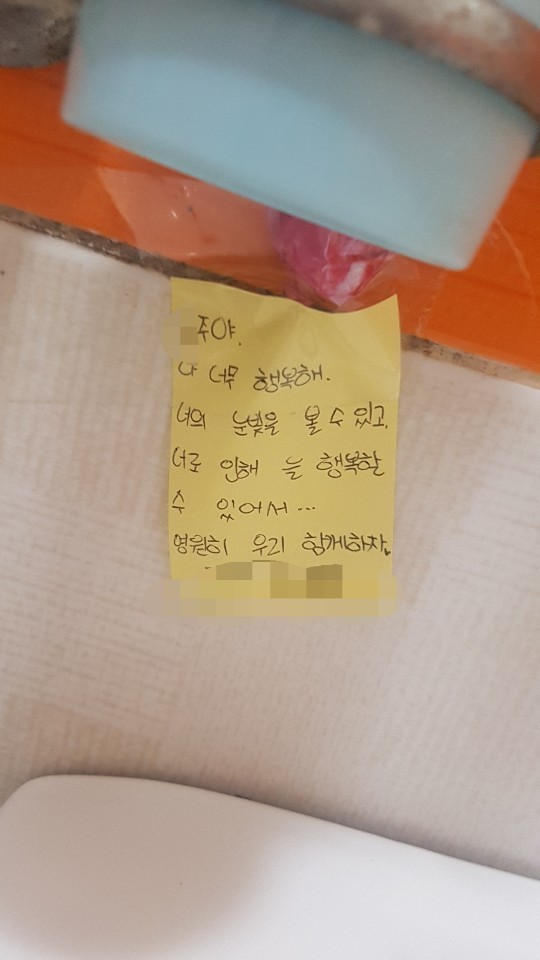 주야.
나 너무 행복해.
너의 눈빛을 볼 수 있고,
너로 인해 늘 행복할
수 있어서...
영원히 우리 함께하자.